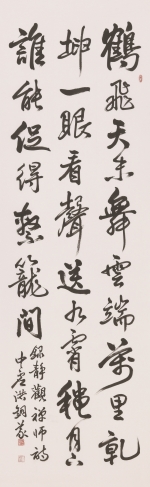 鶴飛天末舞雲端萬里乾
坤一眼看聲送九霄穐月下
誰能促得繫籠間
錄靜觀禪師詩
中 洪